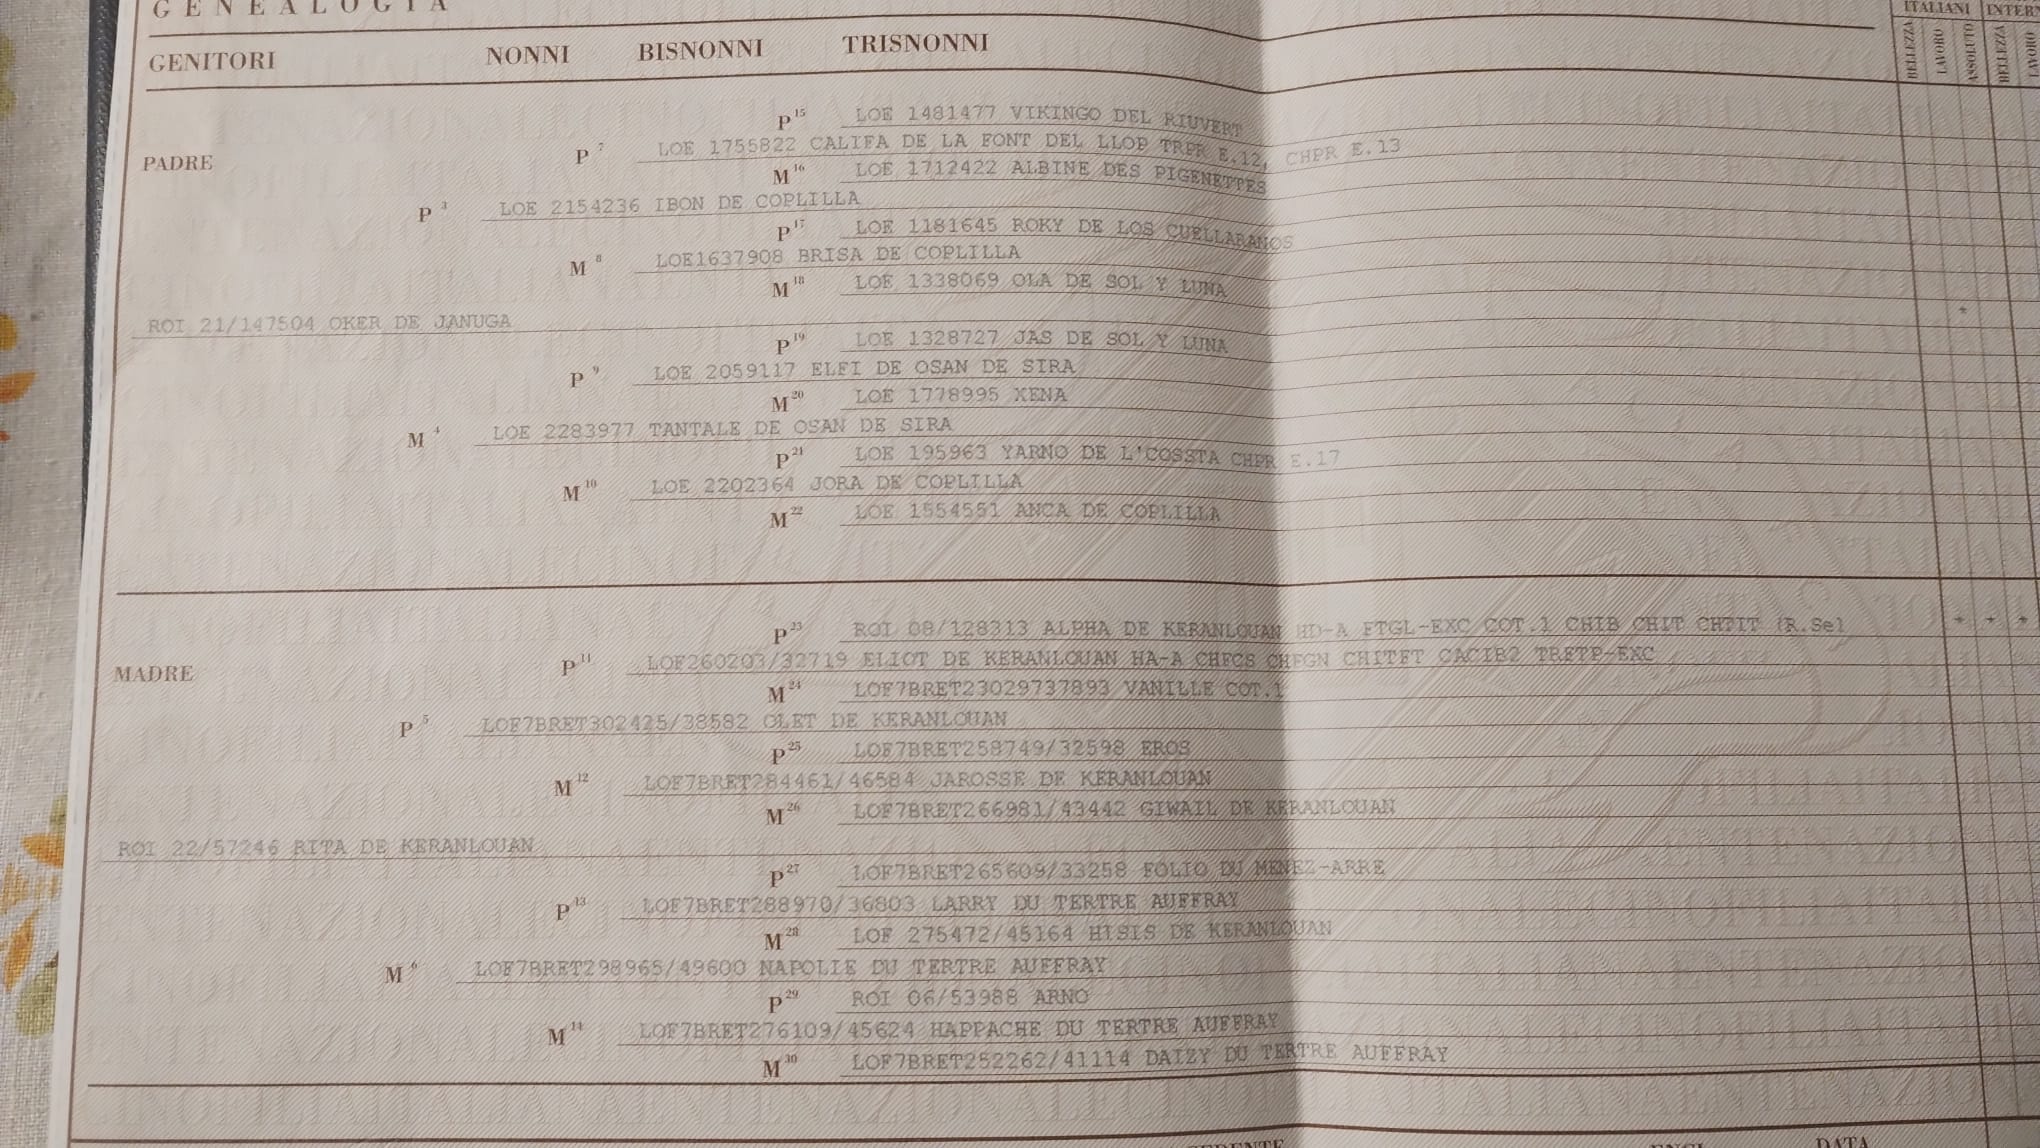 GENEALOGIA
ITALIANI INTERN
BELLEZZA LAVORO ASSOLUTO BELLEZZA LAVORO
GENITORI NONNI BISNONNI TRISNONNI
P15 LOE 1481477 VIKINGO DEL RIUVERT
P7 LOE 1755822 CALIFA DE LA FONT DEL LLOP TRPR E.12, CHPR E.13
PADRE
M16 LOE 1712422 ALBINE DES PIGENETTES
P3 LOE 2154236 IBON DE COPLILLA
P17 LOE 1181645 ROKY DE LOS CUELLARANOS
M8 LOE1637908 BRISA DE COPLILLA
M18 LOE 1338069 OLA DE SOL Y LUNA
ROI 21/147504 OKER DE JANUGA *
P19 LOE 1328727 JAS DE SOL Y LUNA
P9 LOE 2059117 ELFI DE OSAN DE SIRA
M20 LOE 1778995 XENA
M4 LOE 2283977 TANTALE DE OSAN DE SIRA
P21 LOE 195963 YARNO DE L'COSSTA CHPR E.17
M10 LOE 2202364 JORA DE COPLILLA
M22 LOE 1554551 ANCA DE COPLILLA
P23 ROI 08/128313 ALPHA DE KERANLOUAN HD-A FTGL-EXC COT.1 CHIB CHIT CH?IT (R.Se) * * *
P11 LOF260203/32719 ELIOT DE KERANLOUAN HA-A CHFCS CHFGN CHITFT CACIB2 TRETP-EXC
MADRE
M24 LOF7BRET23029737893 VANILLE COT.1
P5 LOF7BRET302425/38582 OLET DE KERANLOUAN
P25 LOF7BRET258749/32598 EROS
M12 LOF7BRET284461/46584 JAROSSE DE KERANLOUAN
M26 LOF7BRET266981/43442 GIWAIL DE KERANLOUAN
ROI 22/57246 RITA DE KERANLOUAN
P27 LOF7BRET265609/33258 FOLIO DU MENEZ-ARRE
P13 LOF7BRET288970/36803 LARRY DU TERTRE AUFFRAY
M28 LOF 275472/45164 HISIS DE KERANLOUAN
M6 LOF7BRET298965/49600 NAPOLIE DU TERTRE AUFFRAY
P29 ROI 06/53988 ARNO
M14 LOF7BRET276109/45624 HAPPACHE DU TERTRE AUFFRAY
M30 LOF7BRET252262/41114 DAIZY DU TERTRE AUFFRAY
DATA